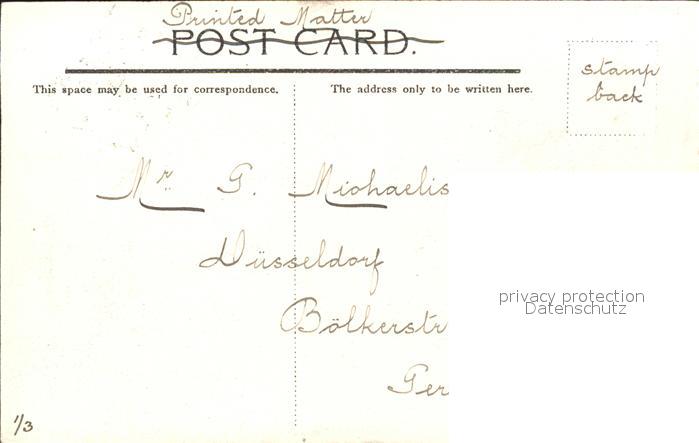 Printed Matter
POST CARD.
stamp
back
This space may be used for correspondence.
The address only to be written here.
Mr G. Michaelis
Düsseldorf
Bölkerstr
privacy protection
Datenschutz
Ger
1/3